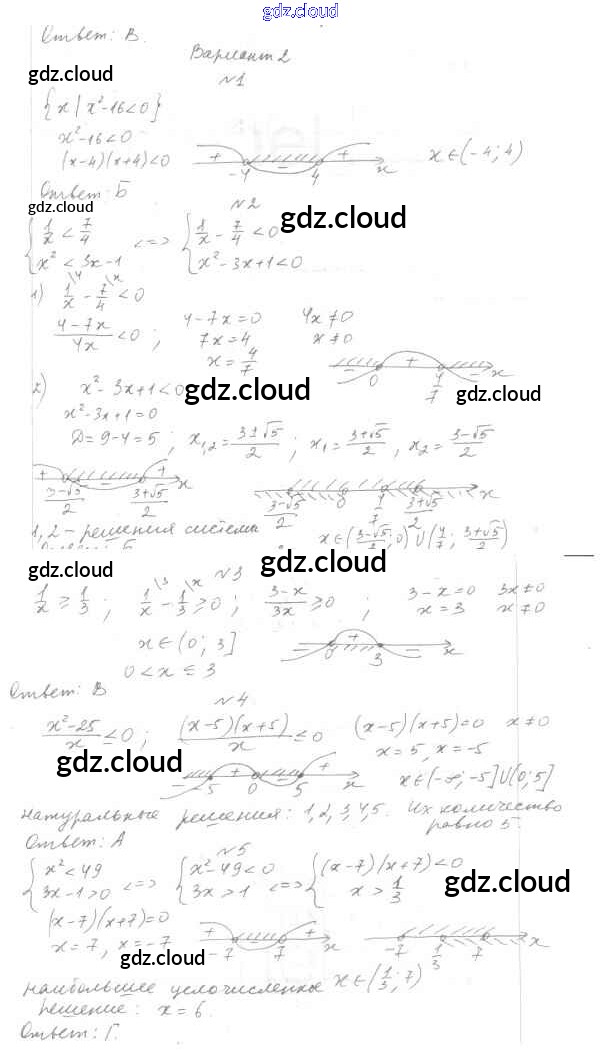 gdz.cloud
Ответ: В.
Вариант 2
gdz.cloud
№1
{x | x²-16<0}
x²-16<0
(x-4)(x+4)<0
+ -4 - 4 + x
x∈(-4; 4)
Ответ: Б
gdz.cloud
№2
gdz.cloud
{ 1/x < 7/4 <=> { 1/x - 7/4 < 0
x² < 3x-1 x² - 3x+1<0
1) 1/x \4 - 7/4 \x <0
4-7x/4x <0 ; 4-7x=0 4x≠0
7x=4 x≠0
x = 4/7
- 0 + 4/7 - x
2) x² - 3x+1<0
gdz.cloud
gdz.cloud
x²-3x+1=0
D=9-4=5 ; x₁,₂ = 3±√5/2 ; x₁ = 3+√5/2 , x₂ = 3-√5/2
+ 3-√5/2 - 3+√5/2 + x
3-√5/2 0 4/7 3+√5/2 x
1, 2 - решения системы
x∈(3-√5/2; 0)∪(4/7; 3+√5/2)
gdz.cloud
№3
gdz.cloud
1/x ≥ 1/3 ; 1/x \3 - 1/3 \x ≥0 ; 3-x/3x ≥0 ; 3-x=0 3x≠0
x=3 x≠0
x∈(0; 3]
- 0 + 3 - x
0<x≤3
Ответ: В
№4
x²-25/x ≤0 ; (x-5)(x+5)/x ≤0 (x-5)(x+5)=0 x≠0
x=5, x=-5
gdz.cloud
gdz.cloud
- -5 + 0 - 5 + x
x∈(-∞; -5]∪(0; 5]
натуральные решения: 1, 2, 3, 4, 5. Их количество
равно 5.
Ответ: А
№5
{ x²<49 <=> { x²-49<0 <=> { (x-7)(x+7)<0
3x-1>0 3x>1 x>1/3
gdz.cloud
(x-7)(x+7)=0
x=7, x=-7
+ -7 - 7 + x
-7 1/3 7 x
gdz.cloud
наибольшее целочисленное x∈(1/3; 7)
решение: x=6.
Ответ: Г.